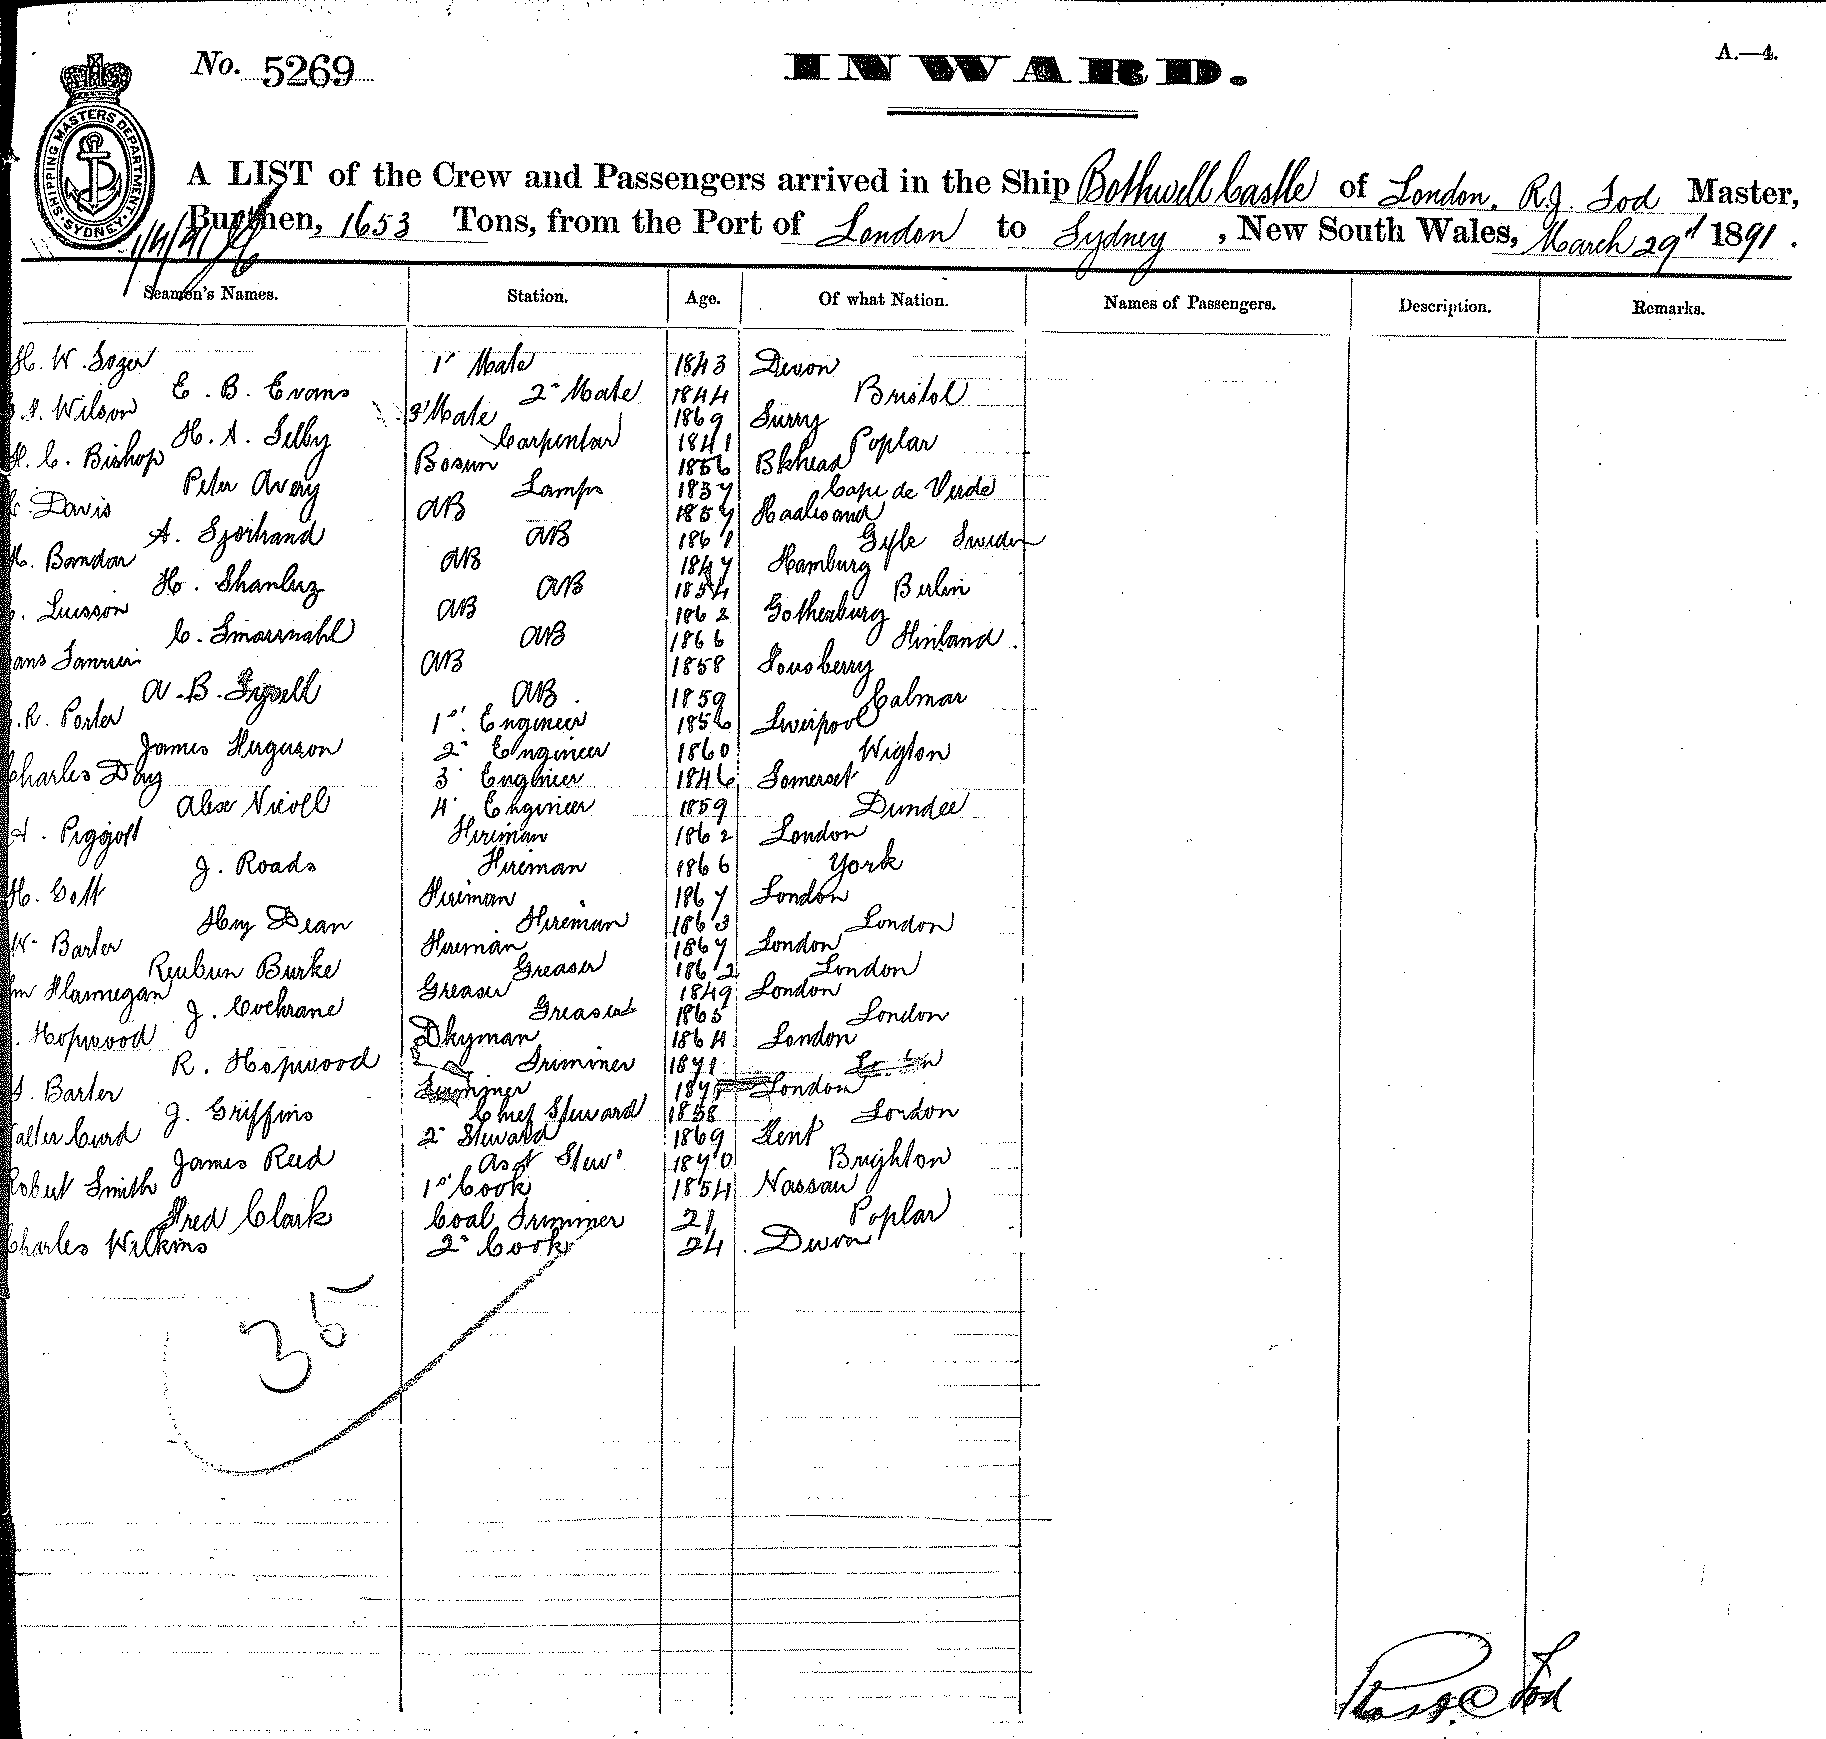 No. 5269
INWARD.
A.—4.
SHIPPING MASTERS DEPARTMENT SYDNEY
A LIST of the Crew and Passengers arrived in the Ship Bothwell Castle of London, R.J. Tod Master,
Burthen, 1653 Tons, from the Port of London to Sydney, New South Wales, March 29th 1891.
Seamen's Names. Station. Age. Of what Nation. Names of Passengers. Description. Remarks.
H. W. Tozer 1st Mate 1843 Devon
E. B. Evans 2nd Mate 1844 Bristol
Wilson 3rd Mate 1869 Surry
H. A. Selby Carpenter 1841 Poplar
H. C. Bishop Bosun 1856 Bkhead
Peter Avery Lamps 1837 Cape de Verde
Davis AB 1857
A. AB 1861 Gefle Sweden
H. AB 1847 Hamburg
H. AB 1854 Berlin
AB 1862 Gothenburg
C. AB 1866 Finland.
AB 1858
A. B. AB 1859 Calmar
R. Porter 1st Engineer 1856 Liverpool
James Ferguson 2nd Engineer 1860 Wigton
Charles Day 3rd Engineer 1846 Somerset
Alex Nicoll 4th Engineer 1859 Dundee
Piggott Fireman 1862 London
J. Roads Fireman 1866 York
H. Fireman 1867 London
Hy Dean Fireman 1863 London
W. Barter Fireman 1867 London
Reuben Burke Greaser 1862 London
Flannegan Greaser 1849 London
J. Cochrane Greaser 1865 London
Hopwood Dkyman 1864 London
R. Hopwood Trimmer 1871 London
Barter Trimmer London
J. Griffins Chief Steward 1858 London
Walter Curd 2nd Steward 1869 Kent
James Reed Asst Stewd 1870 Brighton
Robert Smith 1st Cook 1854 Nassau
Fred Clark Coal Trimmer 21 Poplar
Charles Wilkins 2nd Cook 24 Devon
35
Tod